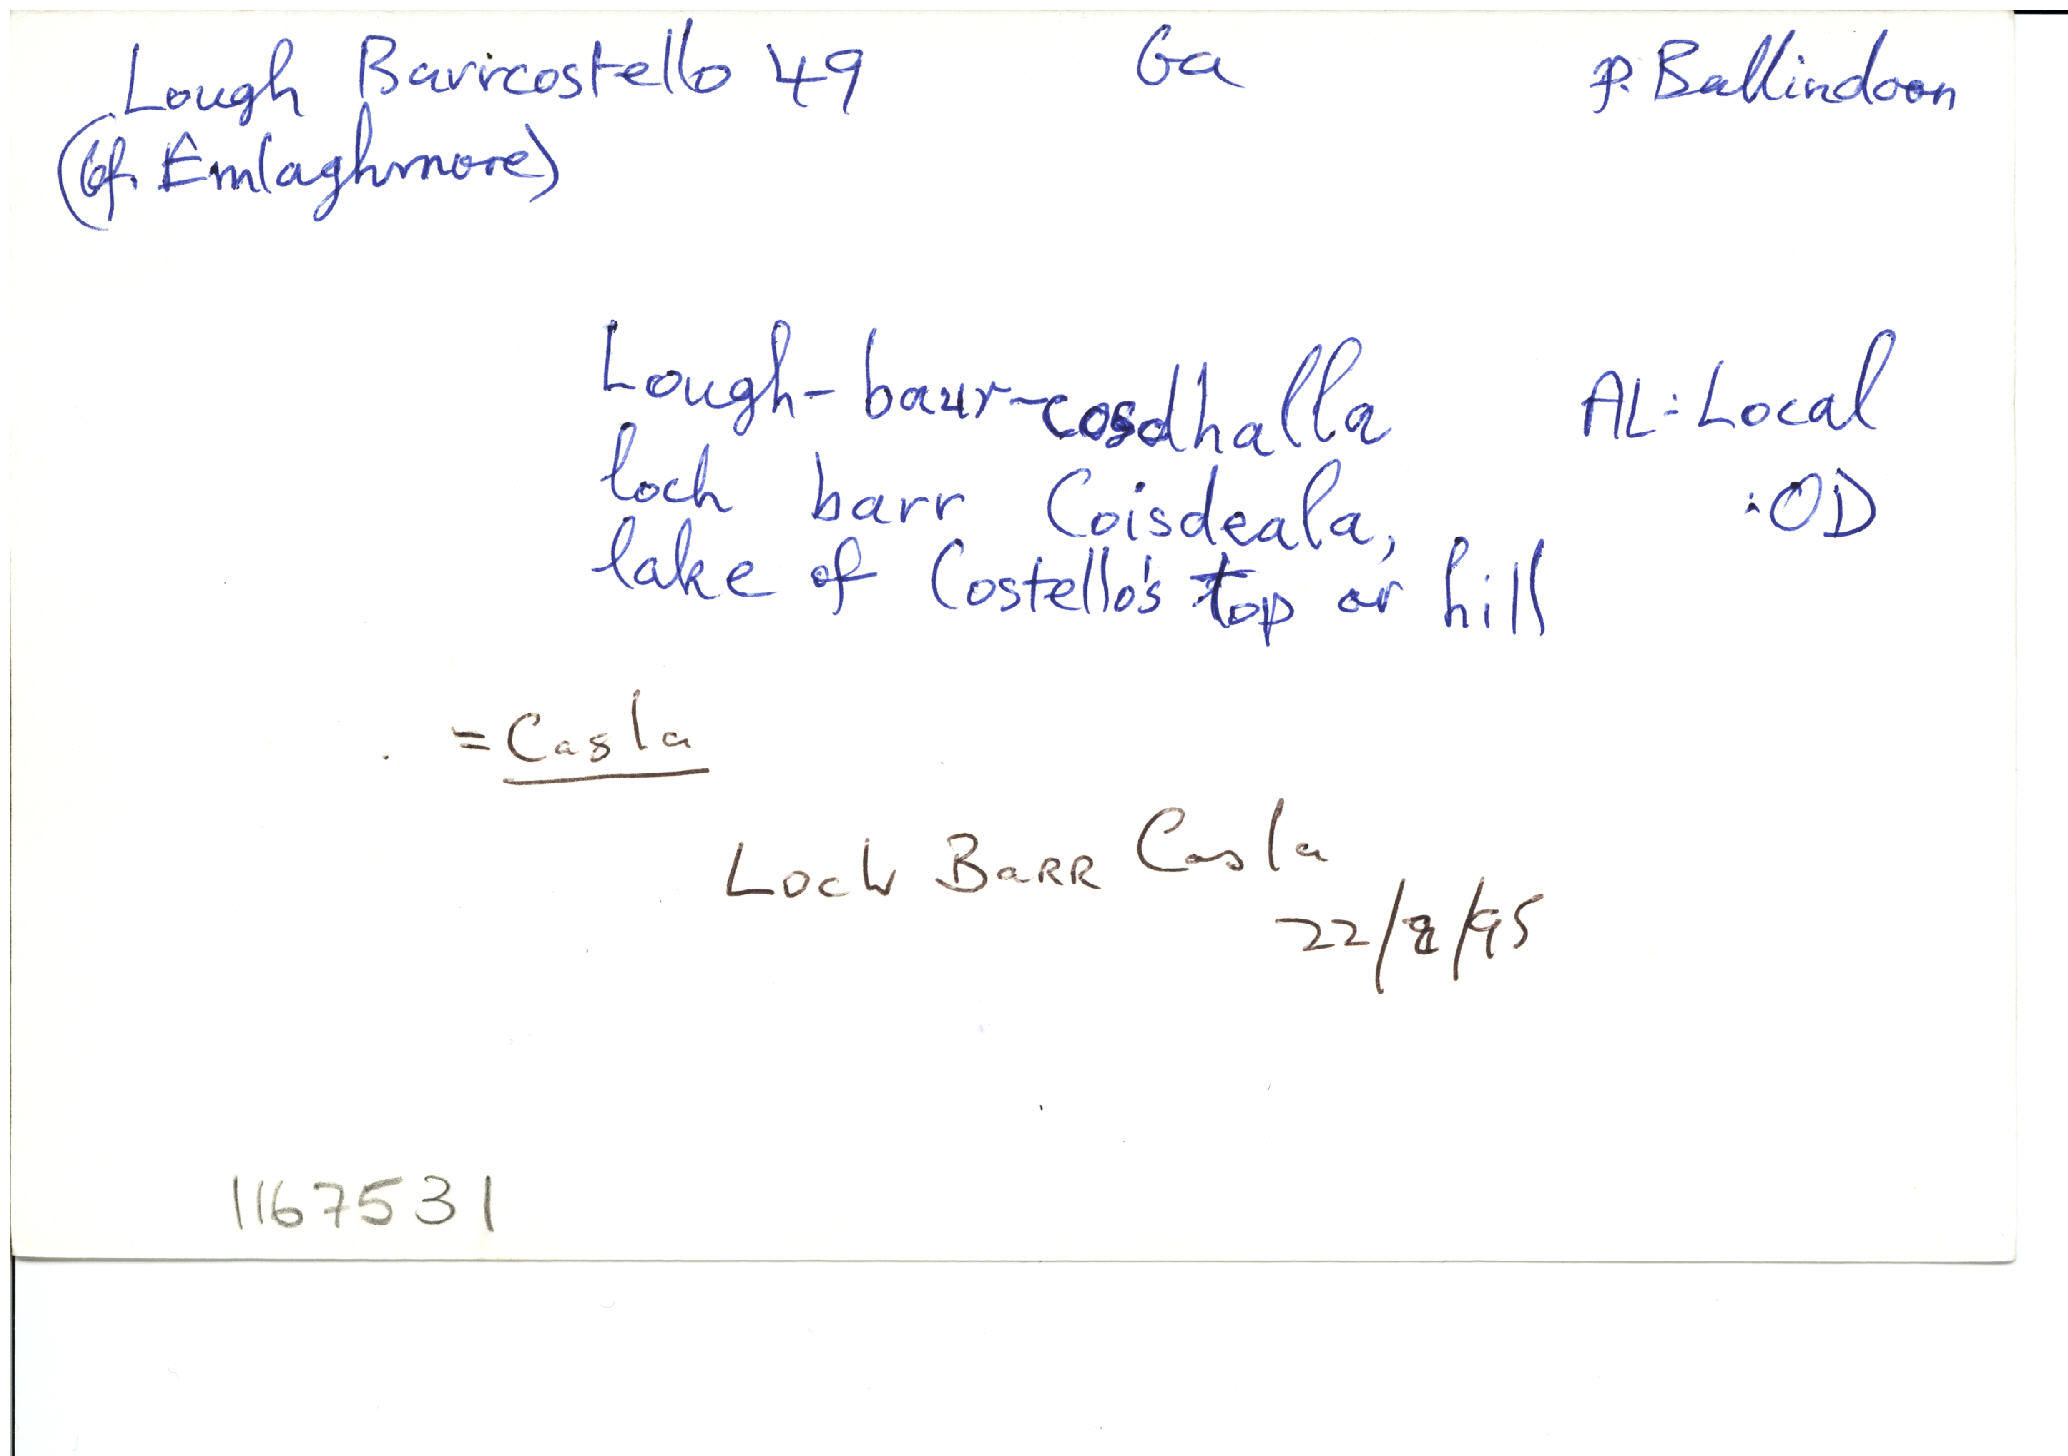 Lough Barrcostello 49 Ga p. Ballindoon
(bf. Emlaghmore)
Lough-baur-cosdhalla AL: Local
loch barr Coisdeala, :OD
lake of Costello's top or hill
= Casla
Loch Barr Casla
22/8/95
1167531